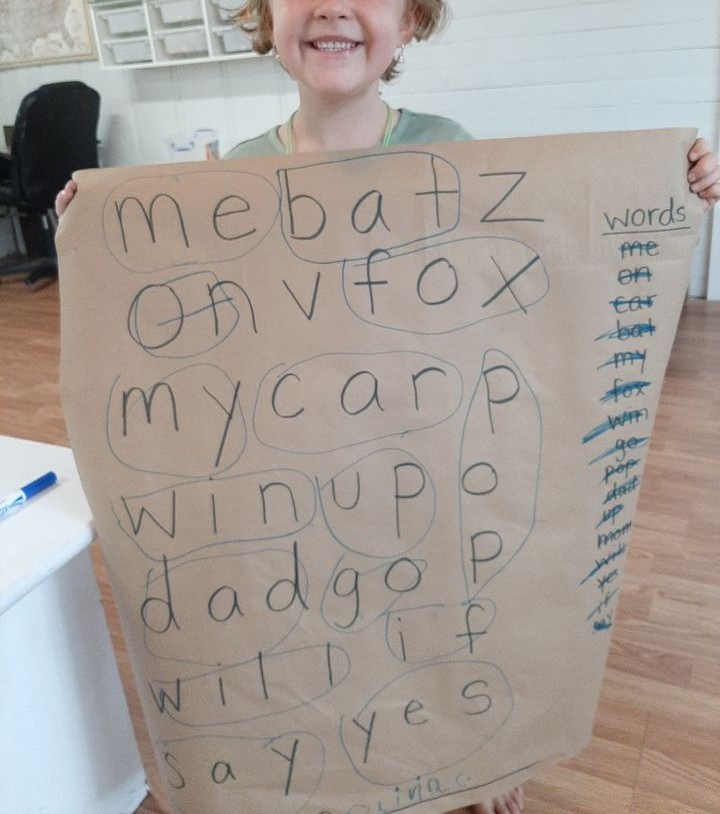 m e b a t z
o n v f o x
m y c a r p
w i n u p o
p
d a d g o
w i l l i f
s a y y e s
words
me
on
car
bat
my
fox
win
go
pop
dad
up
mom
will
yes
if